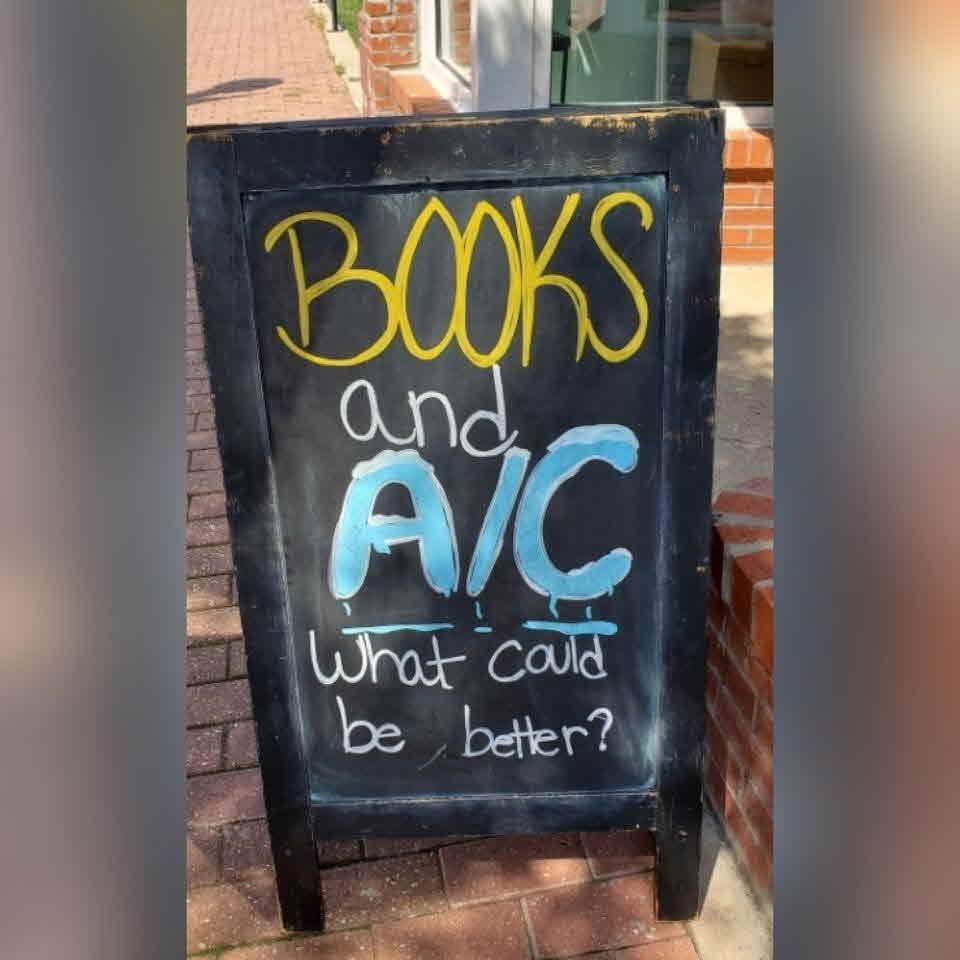 BOOKS
and
A/C
What could
be better?